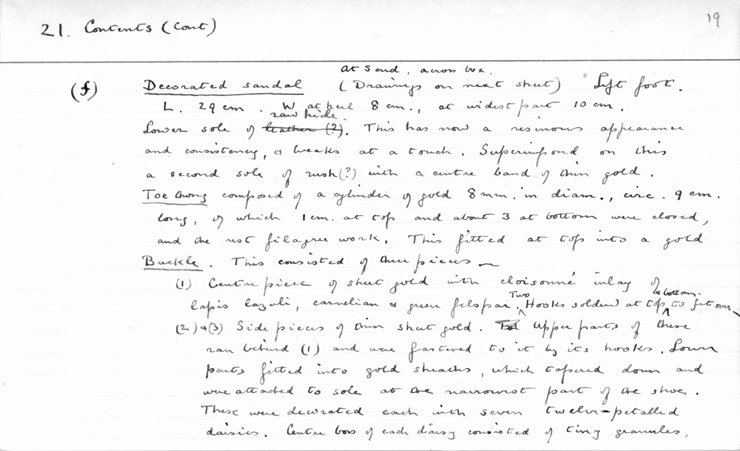 19
21. Contents (Cont)
At S end, across box.
(f) Decorated sandal (Drawings on next sheet) Left foot.
L. 29 cm. W at heel 8 cm., at widest part 10 cm.
raw hide.
Lower sole of leather (?). This has now a resinous appearance
and consistency, & breaks at a touch. Superimposed on this
a second sole of rush (?) with a centre band of thin gold.
Toe thong composed of a cylinder of gold 8 mm. in diam., circ. 9 cm.
long, of which 1 cm. at top and about 3 at bottom were closed,
and the rest filagree work. This fitted at top into a gold
Buckle. This consisted of three pieces —
(1) Centre piece of sheet gold with cloisonné inlay of
& bottom.
lapis lazuli, carnelian & green felspar. Two Hooks soldered at top, to fit over —
(2) & (3) Side pieces of thin sheet gold. Upper parts of these
ran behind (1) and were fastened to it by its hooks. Lower
parts fitted into gold sheaths, which tapered down and
were attached to sole at the narrowest part of the shoe.
These were decorated each with seven twelve-petalled
daisies. Centre boss of each daisy consisted of tiny granules,